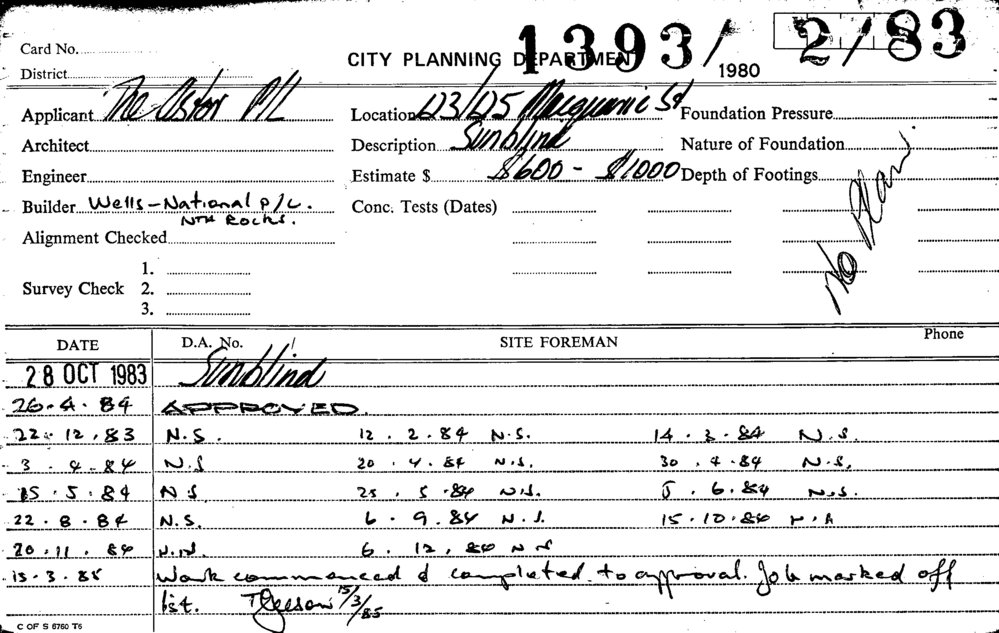 1393/ 2/83
Card No.
CITY PLANNING DEPARTMENT
1980
District
Applicant The Astor P/L Location 123/125 Macquarie St Foundation Pressure
Architect Description Sunblind Nature of Foundation
Engineer Estimate $ $600 - $1000 Depth of Footings
Builder Wells-National P/L. Conc. Tests (Dates)
Nth Rocks.
No Plans
Alignment Checked
1.
Survey Check 2.
3.
DATE D.A. No. / SITE FOREMAN Phone
28 OCT 1983 Sunblind
26.4.84 APPROVED.
22.12.83 N.S. 12.2.84 N.S. 14.3.84 N.S.
3.4.84 N.S 20.4.84 N.S. 30.4.84 N.S.
15.5.84 N S 25.5.84 N.S. 5.6.84 N.S.
22.8.84 N.S. 6.9.84 N.S. 15.10.84
20.11.84 6.12.84
15.3.85 Work commenced & completed to approval. Job marked off
list. 15/3/85
C OF S 6760 T6